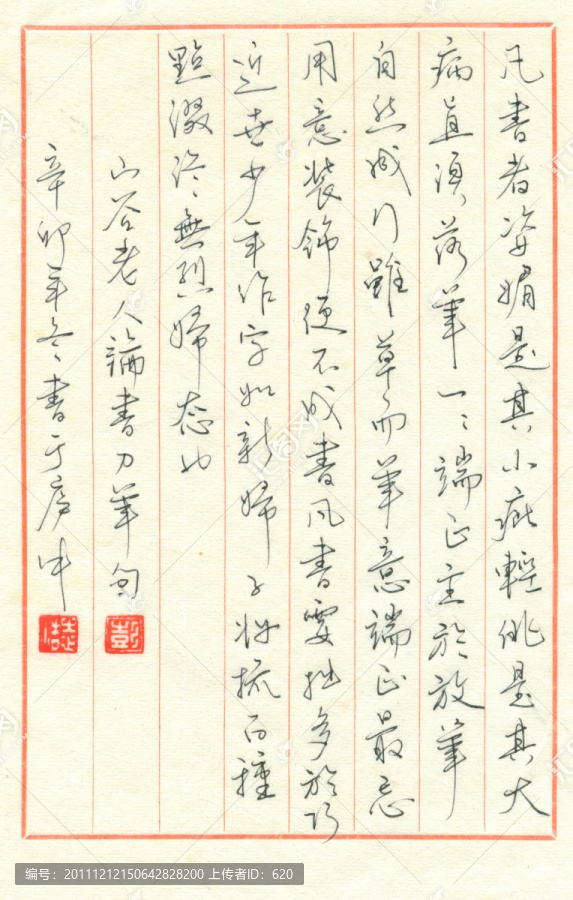 凡書者姿媚是其小疵輕佻是其大
病直須落筆一々端正至於放筆
自然成行雖草而筆意端正最忌
用意装飾便不成書凡書要拙多於巧
近世少年作字如新婦子妝梳百種
點綴終無烈婦态也
山谷老人論書刀筆句
彭
辛卯年冬書于庐中
编号：20111212150642828200 上传者ID：620